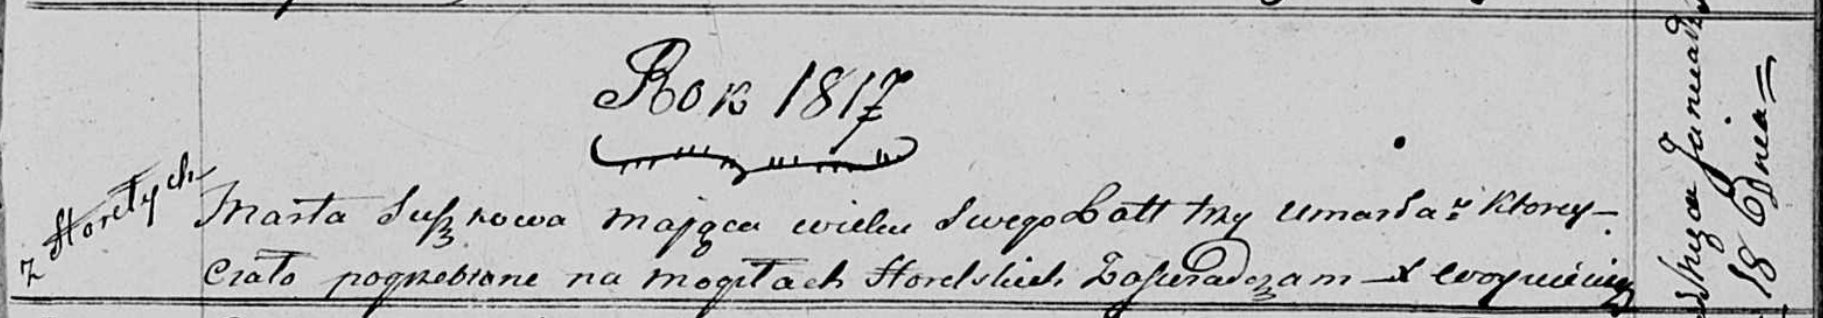 Rok 1817
z Horełych
Marta Suszkowa mająca wieku swego Latt trzy umarła: Ktorey
Ciało pogrzebione na mogiłach Horelskich Zaświadczam X Woyniewicz
18 Dnia